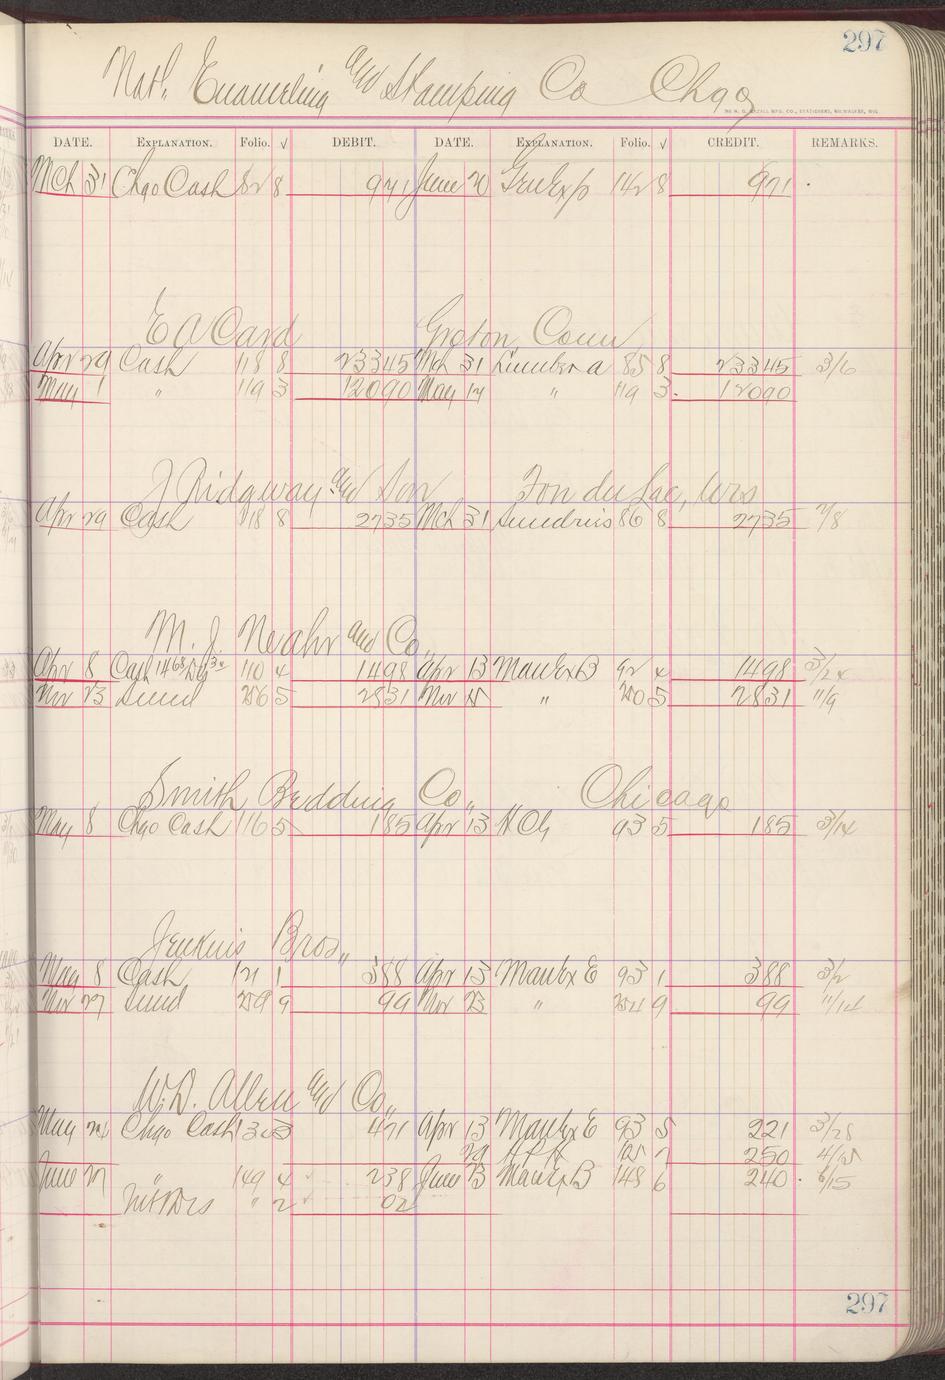 297
Natl. Enameling and Stamping Co Chgo
DATE. EXPLANATION. Folio. √ DEBIT. DATE. EXPLANATION. Folio. √ CREDIT. REMARKS.
Mch 31 Chgo Cash 82 8 971 June 20 Gen Exp 142 8 971
E A Card Groton, Conn
Apr 29 Cash 118 8 23345 Mch 31 Lumber a 85 8 23345 3/6
May 1 " 119 3 12090 May 17 " 119 3 12090
J Ridgway and Son Fon du Lac, Wis
Apr 29 Cash 118 8 2735 Mch 31 Sundries 86 8 2735 2/8
M. J. Neahr and Co.
Apr 8 Cash 110 4 1498 Apr 13 Man Ex B 92 4 1498 3/24
Nov 23 Sund 256 5 2831 Nov 15 " 250 5 2831 11/9
Smith Bedding Co., Chicago
May 8 Chgo Cash 116 5 185 Apr 13 93 5 185 3/14
Jenkins Bros.,
May 8 Cash 121 1 388 Apr 13 Man Ex E 93 1 388 3/2
Nov 27 Sund 259 9 99 Nov 23 " 254 9 99 11/14
W. D. Allen and Co.,
May 24 Chgo Cash 471 Apr 13 Man Ex E 93 5 221 3/28
29 125 7 250
June 27 " 149 4 238 June 23 Man Ex B 148 6 240 6/15
Int & Dis " 2 02
297